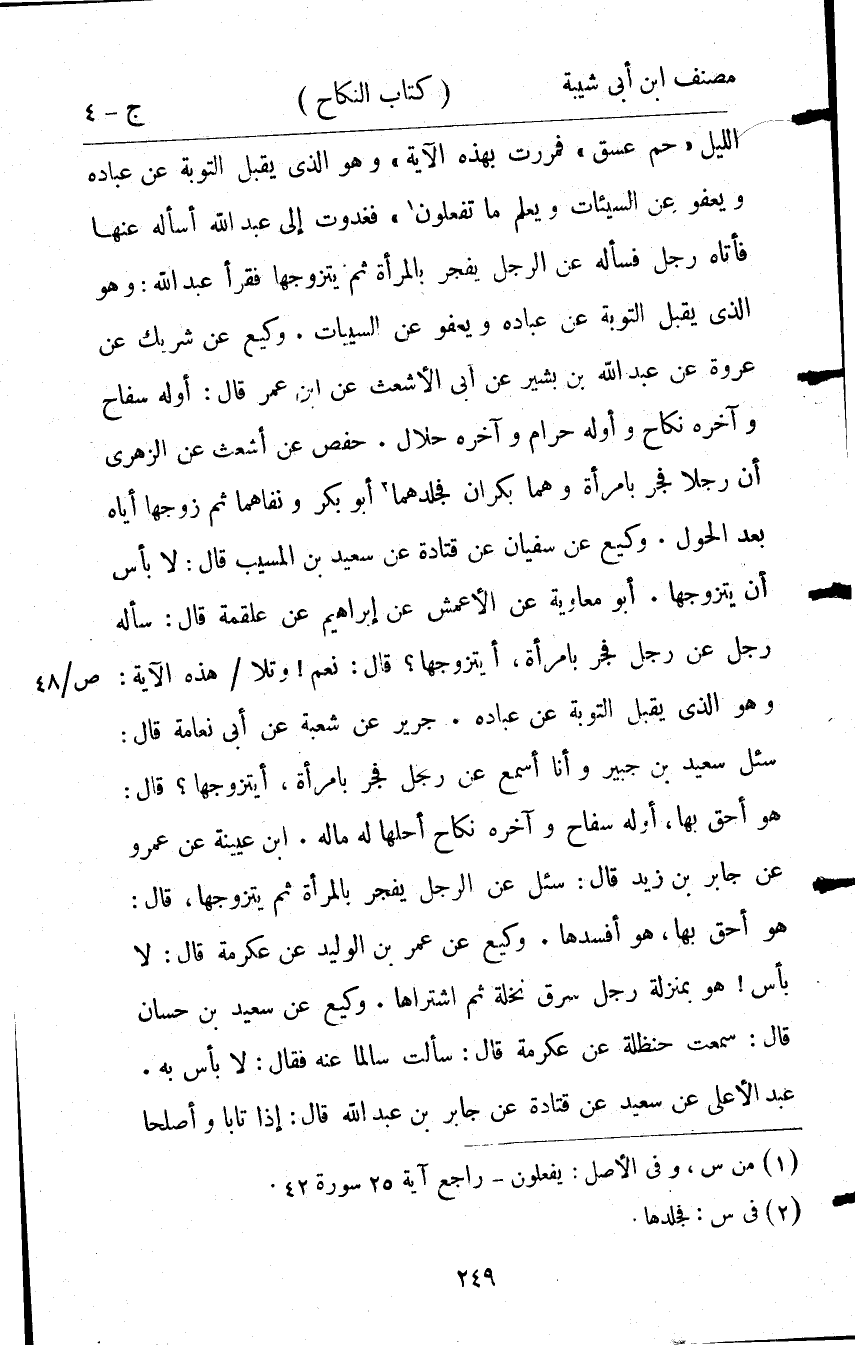 مصنف ابن أبى شيبة ( كتاب النكاح ) ج – ٤
الليل « حم عسق » فمررت بهذه الآية » و هو الذى يقبل التوبة عن عباده
و يعفو عن السيئات و يعلم ما تفعلون١ » فغدوت إلى عبد الله أسأله عنهـا
فأتاه رجل فسأله عن الرجل يفجر بالمرأة ثم يتزوجها فقرأ عبد الله : و هو
الذى يقبل التوبة عن عباده و يعفو عن السيبات . وكيع عن شريك عن
عروة عن عبد الله بن بشير عن أبى الأشعث عن ابن عمر قال : أوله سفاح
و آخره نكاح و أوله حرام و آخره حلال . حفص عن أشعث عن الزهرى
أن رجلا فجر بامرأة و هما بكران فجلدهما٢ أبو بكر و نفاهما ثم زوجها أياه
بعد الحول . وكيع عن سفيان عن قتادة عن سعيد بن المسيب قال : لا بأس
أن يتزوجها . أبو معاوية عن الأعمش عن إبراهيم عن علقمة قال : سأله
رجل عن رجل فجر بامرأة ، أ يتزوجها ؟ قال : نعم ! و تلا / هذه الآية : ص/٤٨
و هو الذى يقبل التوبة عن عباده . جرير عن شعبة عن أبى نعامة قال :
سئل سعيد بن جبير و أنا أسمع عن رجل فجر بامرأة ، أيتزوجها ؟ قال :
هو أحق بها ، أوله سفاح و آخره نكاح أحلها له ماله . ابن عيينة عن عمرو
عن جابر بن زيد قال : سئل عن الرجل يفجر بالمرأة ثم يتزوجها ، قال :
هو أحق بها ، هو أفسدها . وكيع عن عمر بن الوليد عن عكرمة قال : لا
بأس ! هو بمنزلة رجل سرق نخلة ثم اشتراها . وكيع عن سعيد بن حسان
قال : سمعت حنظلة عن عكرمة قال : سألت سالما عنه فقال : لا بأس به .
عبد الأعلى عن سعيد عن قتادة عن جابر بن عبد الله قال : إذا تابا و أصلحا
(١) من س ، و فى الأصل : يفعلون – راجع آية ٢٥ سورة ٤٢ .
(٢) فى س : فجلدها .
٢٤٩